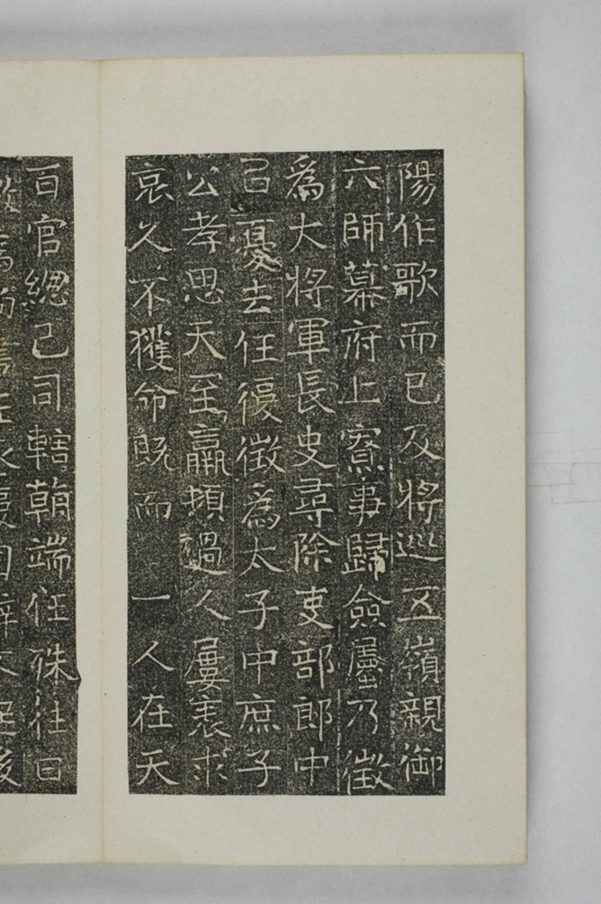 陽作歌而已及將巡五嶺親御
六師幕府上寮事歸僉屬乃徵
爲大將軍長史尋除吏部郎中
己憂去任復徵爲太子中庶子
公孝思天至羸頓過人屢表求
哀久不獲命既而一人在天
百官總己司轄朝端任殊往日